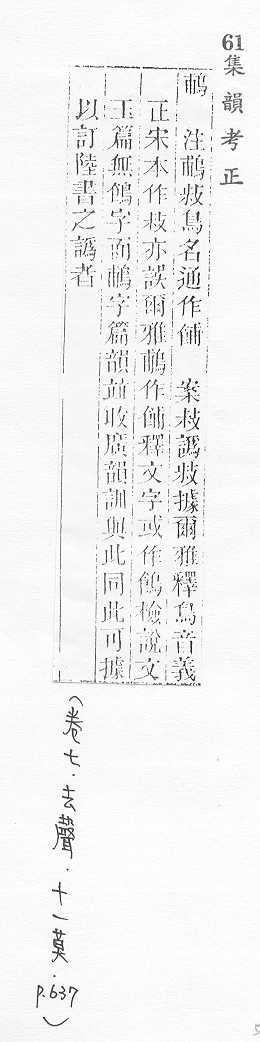 61集韻考正
鵏　注鵏鳥名通作餔　案譌據爾雅釋鳥音義
正宋本作亦誤爾雅鵏作餔釋文字或作檢說文
玉篇無字而鵏字篇韻並收廣韻訓與此同此可據
以訂陸書之譌者
(卷七·去聲·十一莫·P.637)